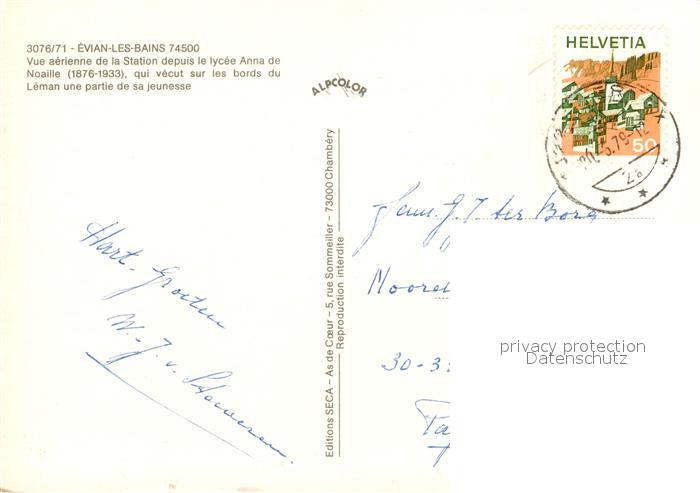 3076/71 - ÉVIAN-LES-BAINS 74500
Vue aérienne de la Station depuis le lycée Anna de
Noaille (1876-1933), qui vécut sur les bords du
Léman une partie de sa jeunesse
ALPCOLOR
HELVETIA
50
Editions SECA – As de Cœur – 5, rue Sommeiller – 73000 Chambéry
Reproduction interdite
Hart. Groeten
W. J. v.
Fam. J. J. ter Borg
30-3
privacy protection
Datenschutz